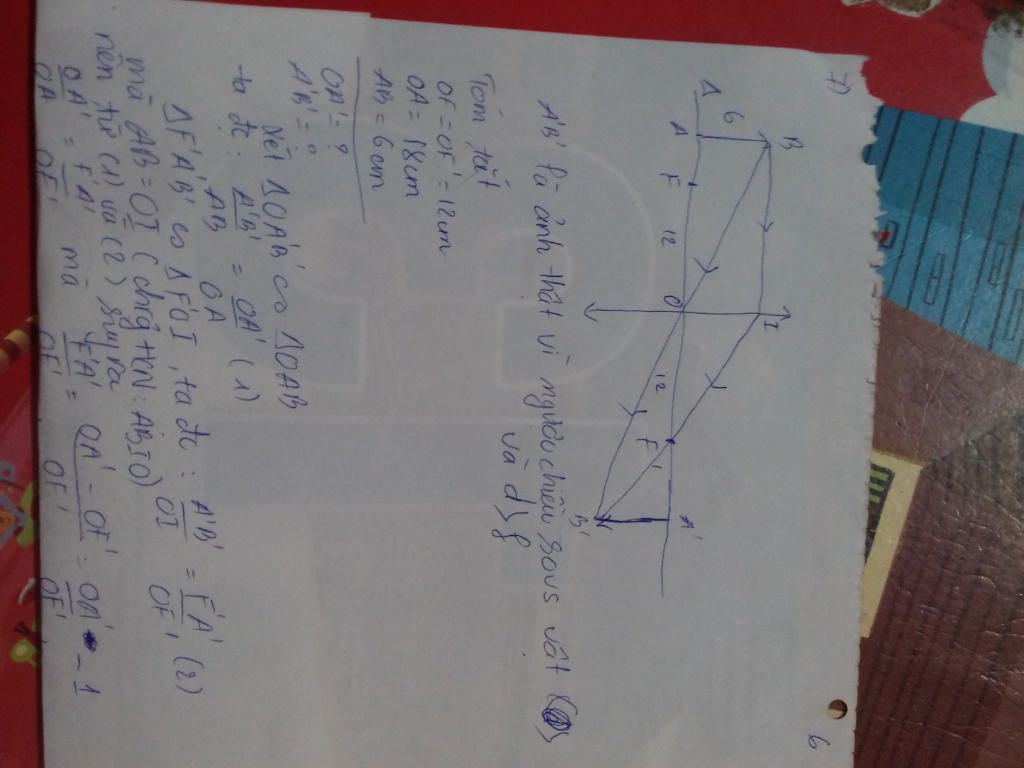 7)
6
B
I
6
Δ
A
F
12
O
12
F'
A'
B'
A'B' là ảnh thật vì ngược chiều so vs vật
và d > f
Tóm tắt
OF = OF' = 12cm
OA = 18cm
AB = 6cm
OA' = ?
A'B' = ?
Xét ΔOA'B' có ΔOAB
ta đc: A'B'/AB = OA'/OA (1)
ΔF'A'B' có ΔF'OI, ta đc: A'B'/OI = F'A'/OF' (2)
mà AB = OI (chứng HCN: ABIO)
nên từ (1) và (2) suy ra
OA'/OA = F'A'/OF' mà F'A'/OF' = OA' - OF'/OF' = OA'/OF' - 1